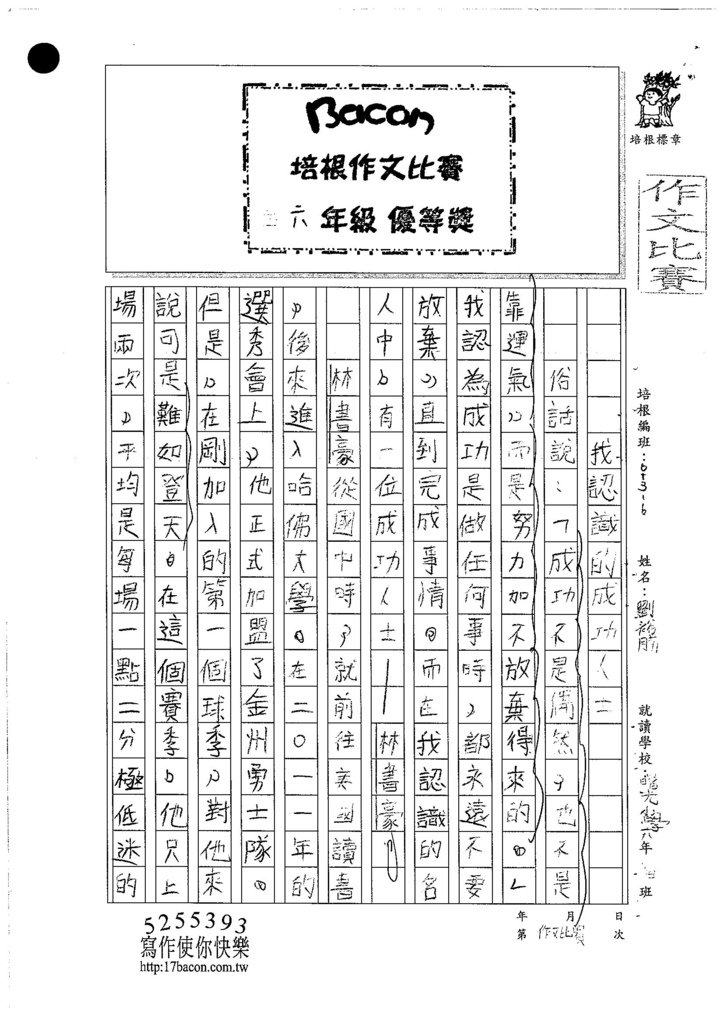 Bacon
培根作文比賽
六年級 優等獎
培根標章
作文比賽
培根編班：
姓名：劉
就讀學校：
六年
班
我認識的成功人士
俗話說：「成功不是偶然，也不是
靠運氣，而是努力加不放棄得來的。」
我認為成功是做任何事時，都永遠不要
放棄，直到完成事情。而在我認識的名
人中，有一位成功人士—林書豪。
林書豪從國中時，就前往美國讀書
，後來進入哈佛大學。在二〇一一年的
選秀會上，他正式加盟了金州勇士隊。
但是，在剛加入的第一個球季，對他來
說可是難如登天。在這個賽季，他只上
場兩次，平均是每場一點二分極低迷的
年 月 日
第 作文比賽 次
5255393
寫作使你快樂
http:17bacon.com.tw